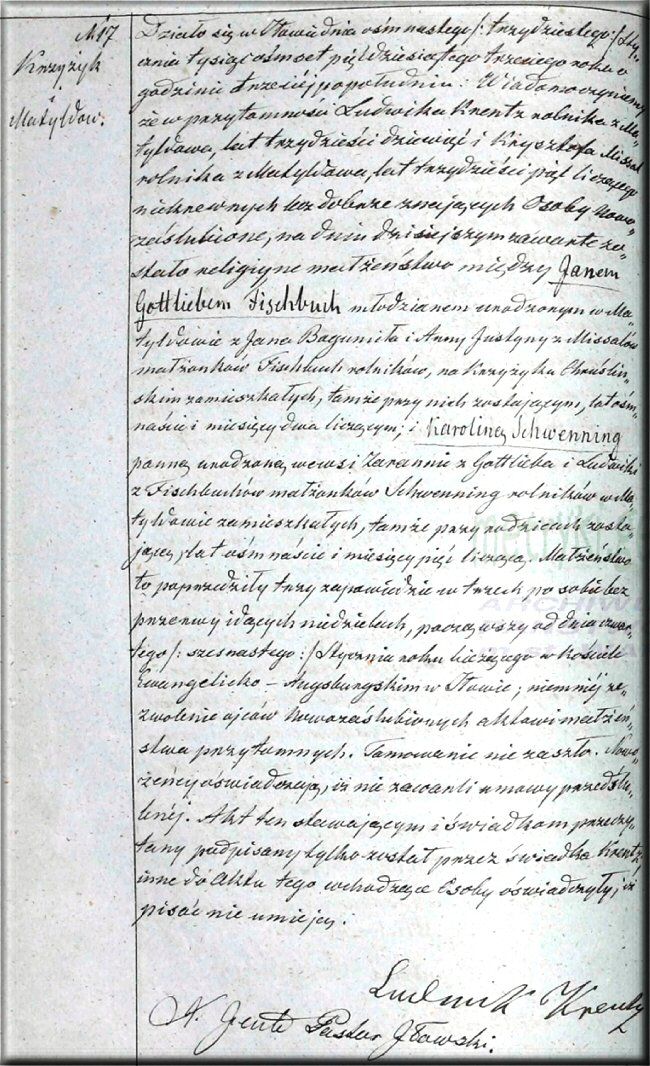 № 17
Krzyżyk
i
Matyldów.
Działo się w Iłowie dnia ośmnastego /: trzydziestego :/ Sty„
cznia tysiąc ośmset pięćdziesiątego trzeciego roku o
godzinie trzeciej popołudniu. Wiadomo czyniemy
że w przytomności Ludwika Krentz rolnika z Ma„
tyldowa, lat trzydzieści dziewięć i Krysztofa Missal
rolnika z Matyldowa, lat trzydzieści pięć liczącego
niekrewnych lecz dobrze znających Osoby Nowo„
zaślubione, na dniu dzisiejszym zawarte zo„
stało religijne małżeństwo między Janem
Gottliebem Fischbuch młodzianem urodzonym w Ma„
tyldowie z Jana Bogumiła i Anny Justyny z Missalów
małżonków Fischbuch rolników, na Krzyżyku Chruśliń„
skim zamieszkałych, tamże przy nich zostającym, lat ośm„
naście i miesięcy dwa liczącym; i Karoliną Schwenning
panną urodzoną we wsi Zarannie z Gottlieba i Ludwiki
z Fischbuchów małżonków Schwenning rolników w Ma„
tyldowie zamieszkałych, tamże przy rodzicach zosta„
jącą, lat ośmnaście i miesięcy pięć liczącą. Małżeństwo
to poprzedziły trzy zapowiedzie w trzech po sobie bez
przerwy idących niedzielach, począwszy od dnia czwar„
tego /: szesnastego :/ Stycznia roku bieżącego w kościele
Ewangelicko – Augsburgskim w Iłowie; niemniéj ze„
zwolenie ojców Nowozaślubionych aktowi małżeń„
stwa przytomnych. Tamowanie nie zaszło. Nowo„
żeńcy oświadczają, iż nie zawarli umowy przedślu„
bnéj. Akt ten stawającym i świadkom przeczy„
tany podpisany tylko został przez świadka Krentz
inne do Aktu tego wchodzące Osoby oświadczyły, iż
pisać nie umieją.
Ludwik Krentz
Pastor Iłowski.